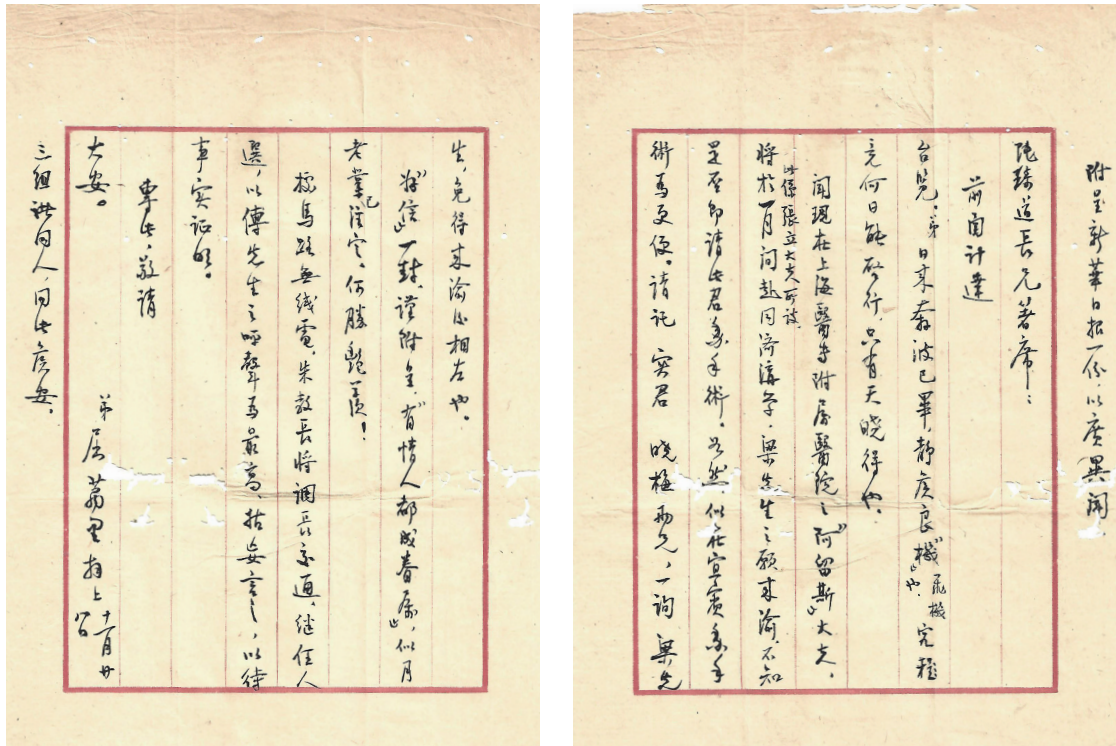 附呈新華日报一份,以广異闻。
道長兄著席:
前函计達
台览。弟日来奔波已畢,静候良“機”也。飛機究竟
竟何日能啟行,只有天晓得也。
闻現在上海醫专附属醫院之“阿留斯”大夫,
此係張立大夫所谈.
将於一月间赴同济講学,梁先生之願来渝,不知
是否即请此君為手術。若然,似在宜賓為手
術為更便。请託 实君 晓梅两兄,一詢 梁先
生,免得来渝後相左也。
“好信”一封,谨附呈,“有情人都成眷属”,似月
老業已注定,何勝艷羡!
據馬路無线電,朱教長将调長交通,继任人
選,以傅先生之呼聲為最高,姑妄言之,以待
事实证明。
專此,敬请
大安。
弟 屈萬里拜上 十一月廿八日
三组諸同人同此候安。